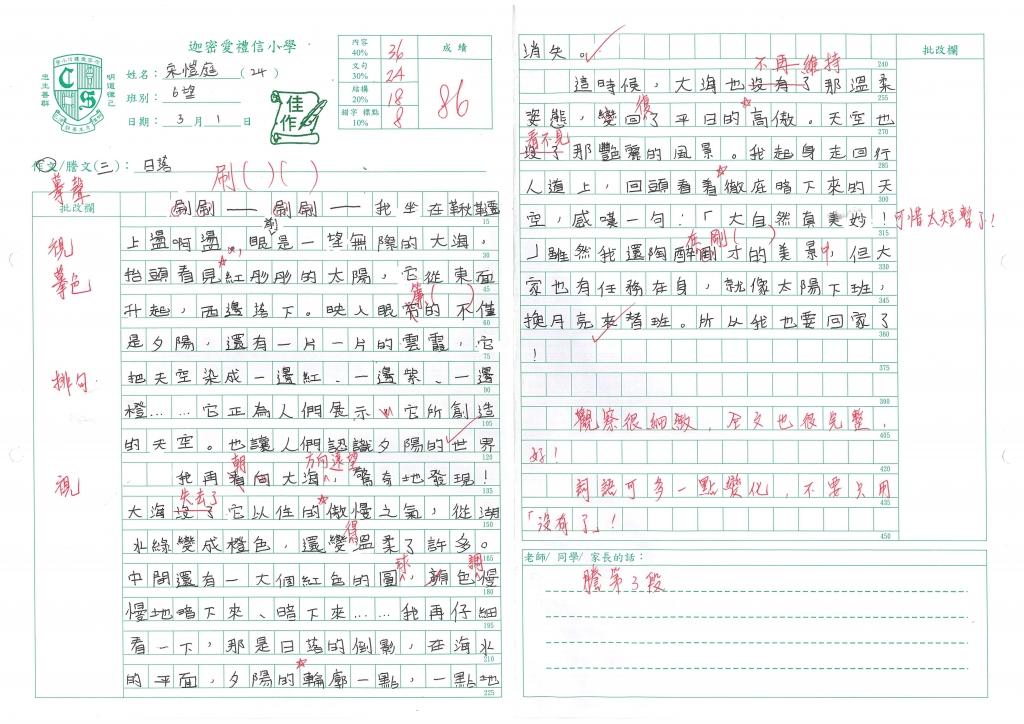 迦密愛禮信小學
姓名：宋愷庭(24)
班別：6望
日期：3月1日
佳作
內容 40% 36
文句 30% 24
結構 20% 18
錯字 標點 10% 8
成績
86
作文/謄文(三)：日落
刷( )( )
批改欄
摹聲
視
摹色
排句
視
刷刷——刷刷——我坐在鞦韆
上盪啊盪，眼前是一望無際的大海，
抬頭看見紅彤彤的太陽，它從東面
升起，西邊落下。映入眼簾的不僅
是夕陽，還有一片一片的雲霞，它
把天空染成一邊紅、一邊紫、一邊
橙……它正為人們展示它所創造
的天空。也讓人們認識夕陽的世界
朝 方向遠望
我再看向大海，驚奇地發現！
失去了
大海沒了它以往的傲慢之氣，從湖
水綠變成橙色，還變得溫柔了許多。
球 調
中間還有一大個紅色的圓，顏色慢
慢地暗下來、暗下來……我再仔細
看一下，那是日落的倒影，在海水
的平面，夕陽的輪廓一點，一點地
消失。
批改欄
不再維持
這時候，大海也沒有了那溫柔
姿態，變回了平日的高傲。天空也
復
看不見
沒了那艷麗的風景。我起身走回行
人道上，回頭看着徹底暗下來的天
空，感嘆一句：「大自然真美妙！
可惜太短暫了！
在剛( )
」雖然我還陶醉剛才的美景中，但大
家也有任務在身，就像太陽下班，
換月亮來替班。所以我也要回家了
！
觀察很細緻，全文也很完整，
好！
詞語可多一點變化，不要只用
「沒有了」！
老師/ 同學/ 家長的話：
謄第3段
15
30
45
60
75
90
105
120
135
150
165
180
195
210
225
240
255
270
285
300
315
330
345
360
375
390
405
420
435
450